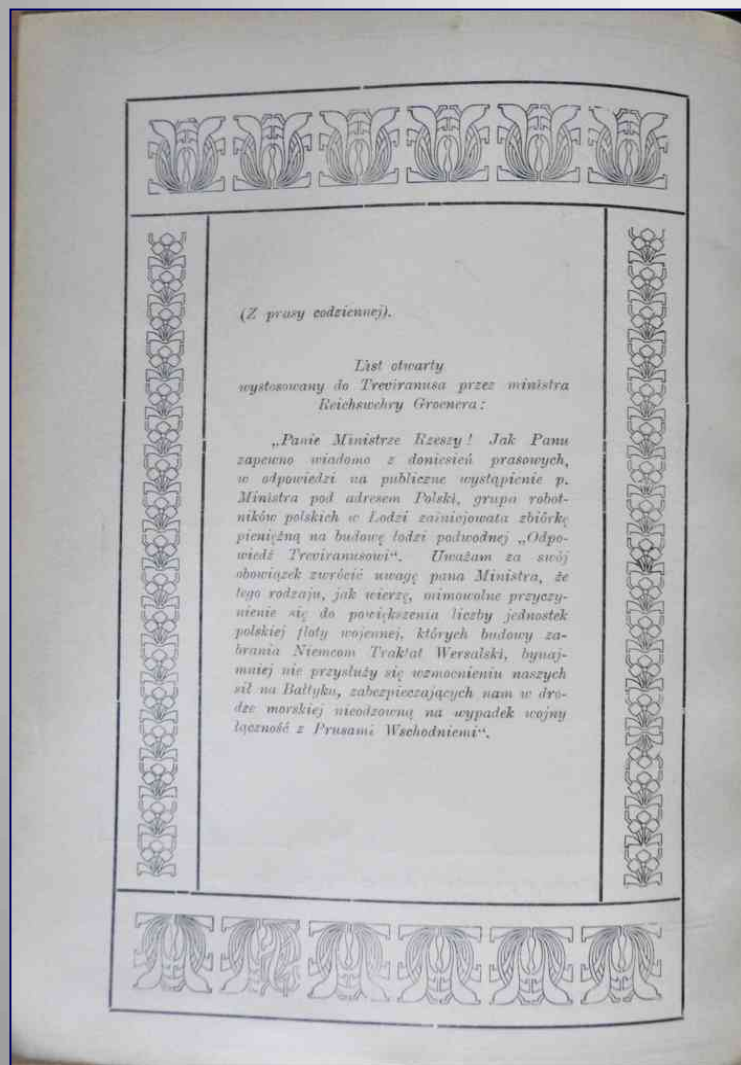 (Z prasy codziennej).
List otwarty
wystosowany do Treviranusa przez ministra
Reichswehry Groenera:
„Panie Ministrze Rzeszy! Jak Panu
zapewno wiadomo z doniesień prasowych,
w odpowiedzi na publiczne wystąpienie p.
Ministra pod adresem Polski, grupa robot-
ników polskich w Łodzi zainicjowała zbiórkę
pieniężną na budowę łodzi podwodnej „Odpo-
wiedź Treviranusowi“. Uważam za swój
obowiązek zwrócić uwagę pana Ministra, że
tego rodzaju, jak wierzę, mimowolne przyczy-
nienie się do powiększenia liczby jednostek
polskiej floty wojennej, których budowy za-
brania Niemcom Traktat Wersalski, bynaj-
mniej nie przysłuży się wzmocnieniu naszych
sił na Bałtyku, zabezpieczających nam w dro-
dze morskiej nieodzowną na wypadek wojny
łączność z Prusami Wschodniemi“.